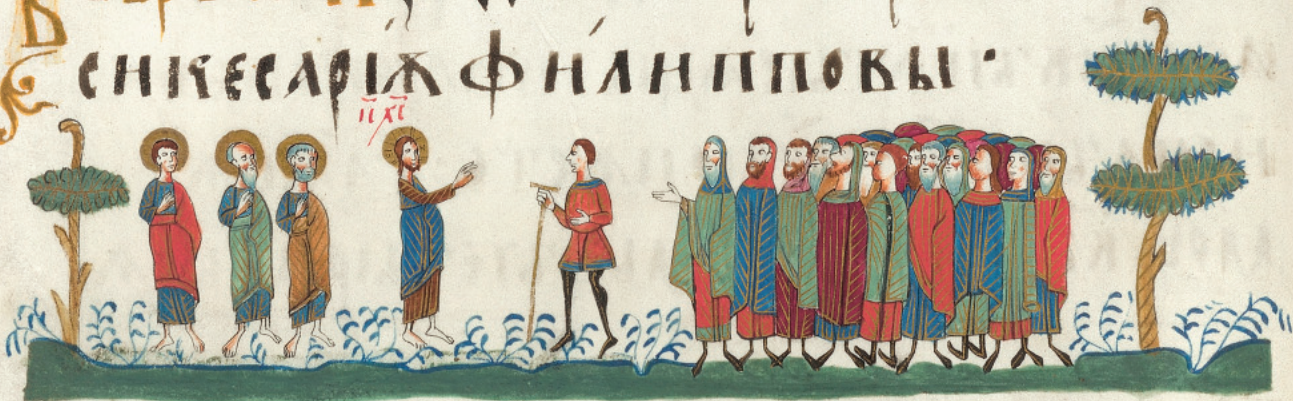 си кесарїѧ филипповы ·
іс҃ хс҃